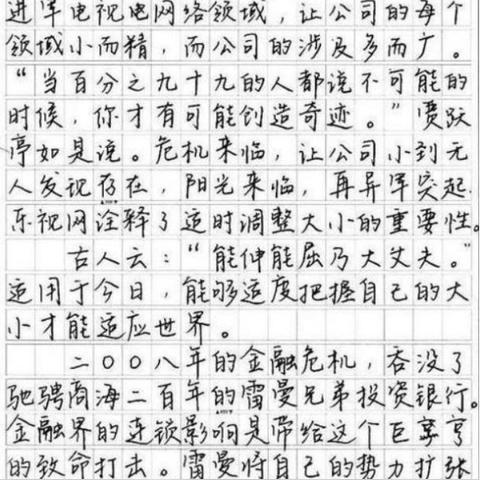 进军电视电网络领域，让公司的每个
领域小而精，而公司的涉及多而广。
“当百分之九十九的人都说不可能的
时候，你才有可能创造奇迹。”贾跃
亭如是说。危机来临，让公司小到无
人发现存在，阳光来临，再异军突起.
乐视网诠释了适时调整大小的重要性。
古人云：“能伸能屈乃大丈夫。”
适用于今日，能够适度把握自己的大
小才能适应世界。
二〇〇八年的金融危机，吞没了
驰骋商海二百年的雷曼兄弟投资银行。
金融界的连锁影响是带给这个巨擘
的致命打击。雷曼将自己的势力扩张